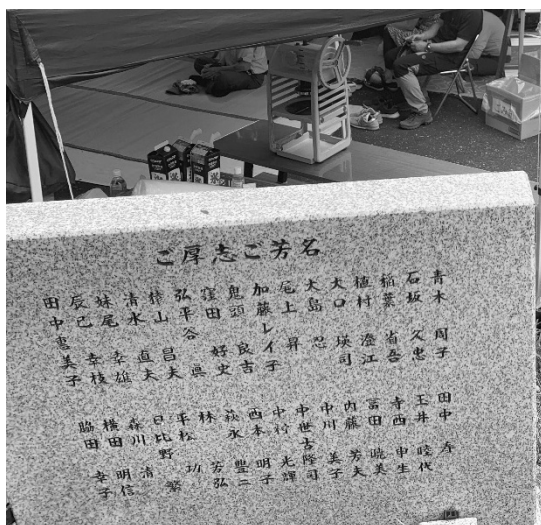 ご厚志ご芳名
青木 周子
石坂 久恵
稲葉 省吾
植村 澄江
大口 瑛司
大島 忍
尾上 昇
加藤レイ子
鬼頭 良吉
窪田 好史
弘平谷 眞
榛山 昌夫
清水 直夫
妹尾 幸雄
辰己 幸枝
田中恵美子
田中 寿
玉井 睦代
寺西 申生
富田 暁美
内藤 芳夫
中川 美子
中世古隆司
中村 光輝
西本 明子
萩永 豊二
林 芳弘
平松 功
日比野 繁
森川 清
横田 明信
脇田 幸子